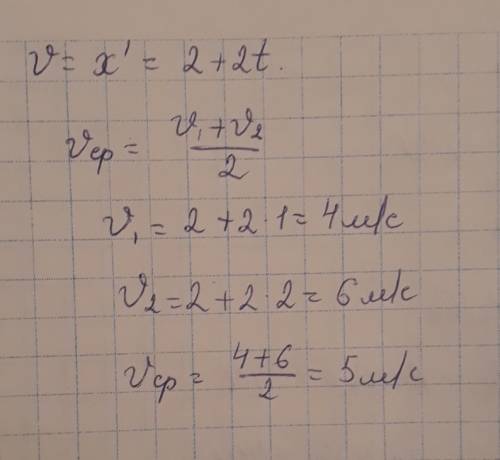 v = x' = 2 + 2t.
vср = (v₁ + v₂)/2
v₁ = 2 + 2·1 = 4 м/с
v₂ = 2 + 2·2 = 6 м/с
vср = (4+6)/2 = 5 м/с